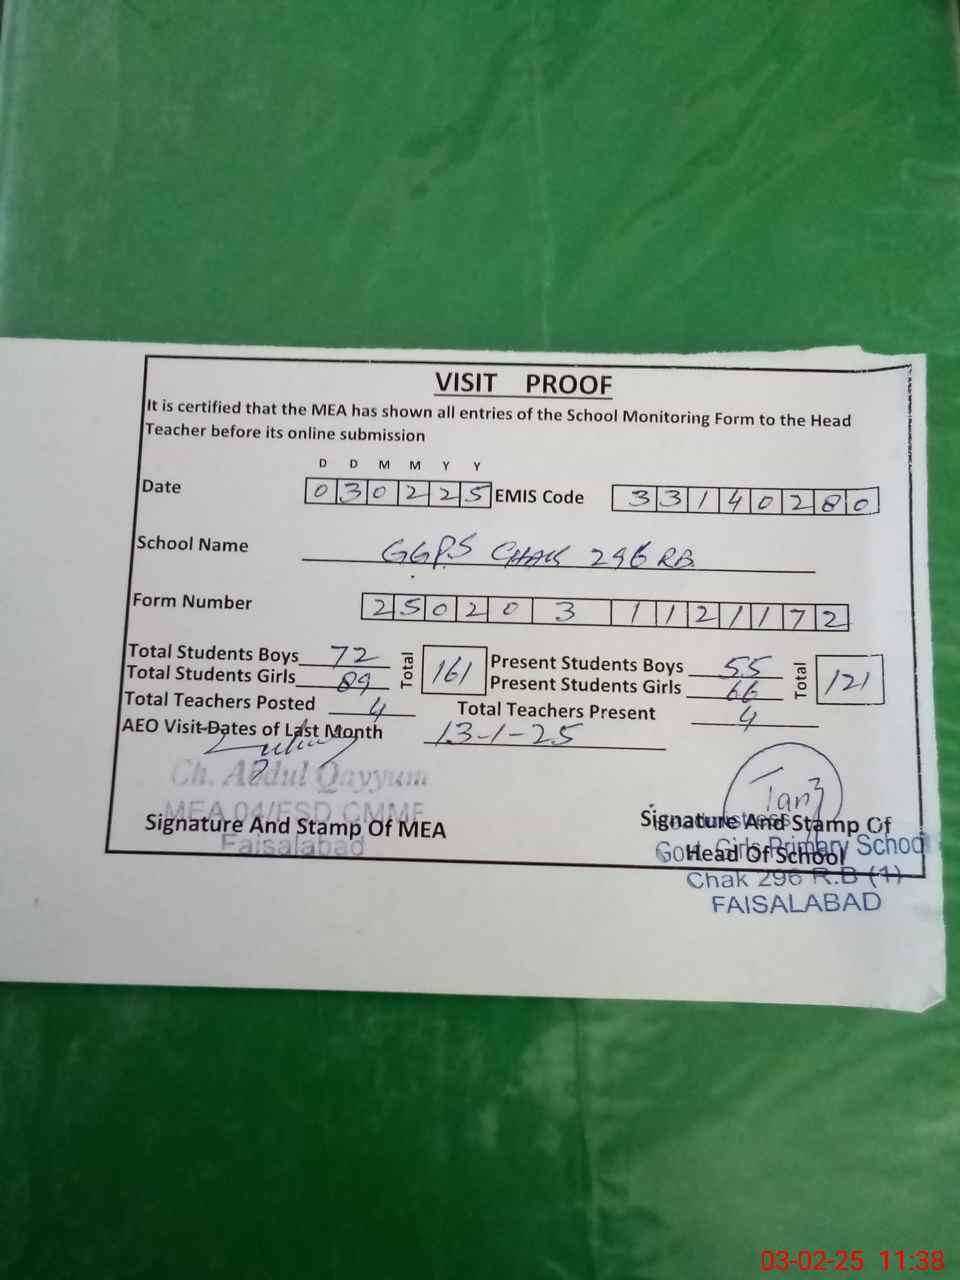 VISIT PROOF
It is certified that the MEA has shown all entries of the School Monitoring Form to the Head
Teacher before its online submission
D D M M Y Y
Date 0 3 0 2 2 5 EMIS Code 3 3 1 4 0 2 8 0
School Name GGPS CHAK 296 RB.
Form Number 2 5 0 2 0 3 1 1 2 1 1 7 2
Total Students Boys 72 Total 161 Present Students Boys 55 Total 121
Total Students Girls 89 Present Students Girls 66
Total Teachers Posted 4 Total Teachers Present 4
AEO Visit Dates of Last Month 13-1-25
Ch. Abdul Qayyum
MEA 04/FSD CMMF
Faisalabad
Signature And Stamp Of MEA
Signature And Stamp Of
Head Of School
Govt. Girls Primary School
Chak 296 R.B (1)
FAISALABAD
03-02-25 11:38